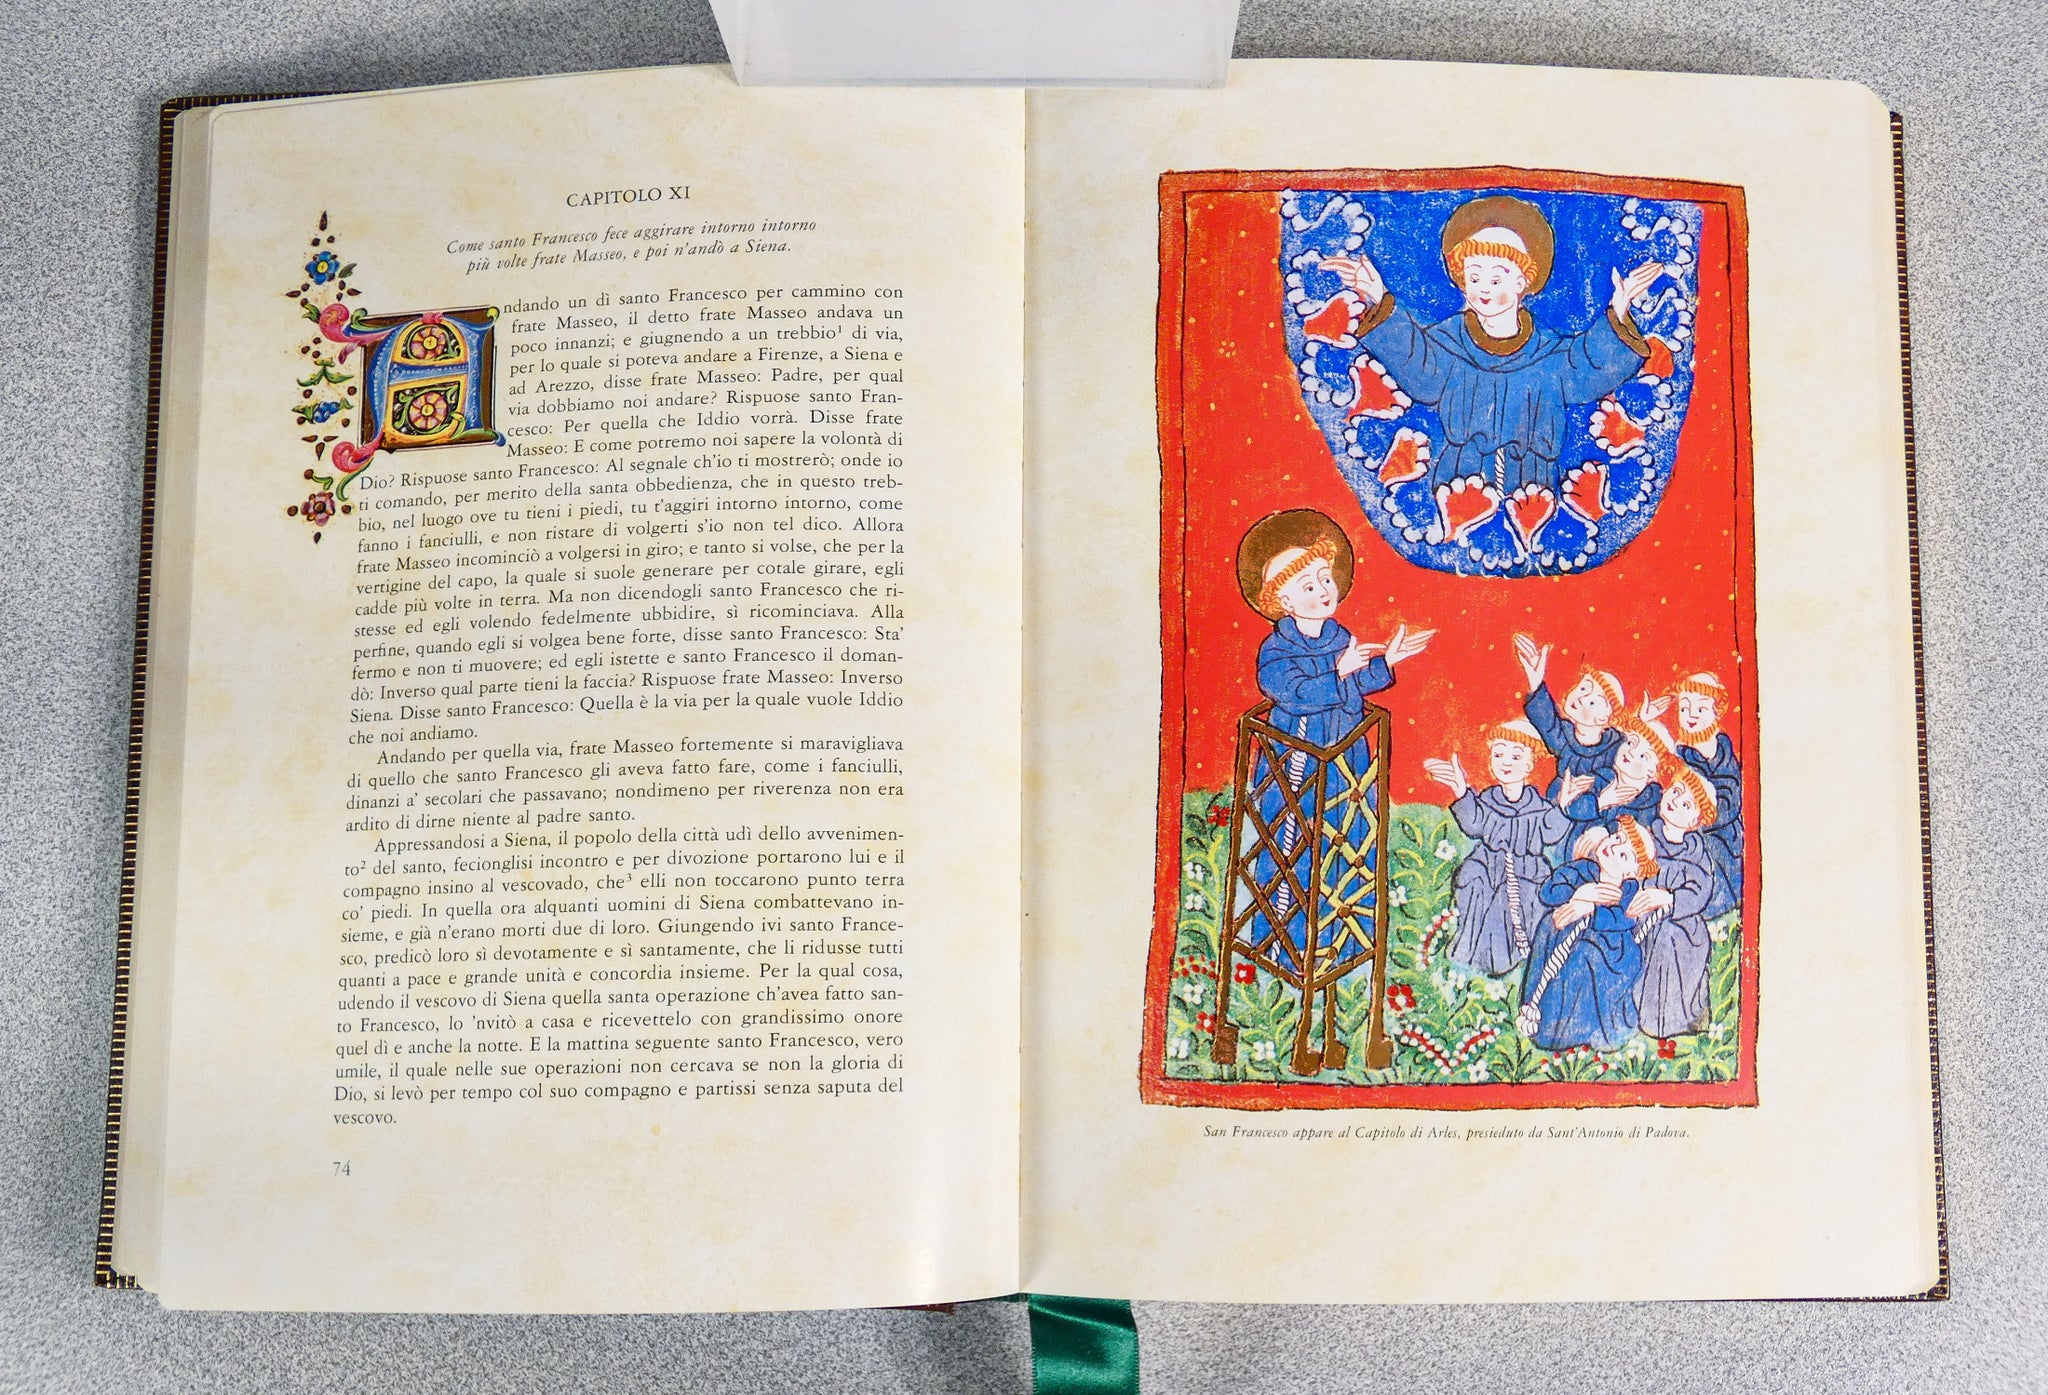 CAPITOLO XI
Come santo Francesco fece aggirare intorno intorno
più volte frate Masseo, e poi n'andò a Siena.
Andando un dì santo Francesco per cammino con
frate Masseo, il detto frate Masseo andava un
poco innanzi; e giugnendo a un trebbio¹ di via,
per lo quale si poteva andare a Firenze, a Siena e
ad Arezzo, disse frate Masseo: Padre, per qual
via dobbiamo noi andare? Rispuose santo Fran-
cesco: Per quella che Iddio vorrà. Disse frate
Masseo: E come potremo noi sapere la volontà di
Dio? Rispuose santo Francesco: Al segnale ch'io ti mostrerò; onde io
ti comando, per merito della santa obbedienza, che in questo treb-
bio, nel luogo ove tu tieni i piedi, tu t'aggiri intorno intorno, come
fanno i fanciulli, e non ristare di volgerti s'io non tel dico. Allora
frate Masseo incominciò a volgersi in giro; e tanto si volse, che per la
vertigine del capo, la quale si suole generare per cotale girare, egli
cadde più volte in terra. Ma non dicendogli santo Francesco che ri-
stesse ed egli volendo fedelmente ubbidire, sì ricominciava. Alla
perfine, quando egli si volgea bene forte, disse santo Francesco: Sta'
fermo e non ti muovere; ed egli istette e santo Francesco il doman-
dò: Inverso qual parte tieni la faccia? Rispuose frate Masseo: Inverso
Siena. Disse santo Francesco: Quella è la via per la quale vuole Iddio
che noi andiamo.
Andando per quella via, frate Masseo fortemente si maravigliava
di quello che santo Francesco gli aveva fatto fare, come i fanciulli,
dinanzi a' secolari che passavano; nondimeno per riverenza non era
ardito di dirne niente al padre santo.
Appressandosi a Siena, il popolo della città udì dello avvenimen-
to² del santo, fecionglisi incontro e per divozione portarono lui e il
compagno insino al vescovado, che³ elli non toccarono punto terra
co' piedi. In quella ora alquanti uomini di Siena combattevano in-
sieme, e già n'erano morti due di loro. Giungendo ivi santo France-
sco, predicò loro sì devotamente e sì santamente, che li ridusse tutti
quanti a pace e grande unità e concordia insieme. Per la qual cosa,
udendo il vescovo di Siena quella santa operazione ch'avea fatto san-
to Francesco, lo 'nvitò a casa e ricevettelo con grandissimo onore
quel dì e anche la notte. E la mattina seguente santo Francesco, vero
umile, il quale nelle sue operazioni non cercava se non la gloria di
Dio, si levò per tempo col suo compagno e partissi senza saputa del
vescovo.
74
San Francesco appare al Capitolo di Arles, presieduto da Sant'Antonio di Padova.